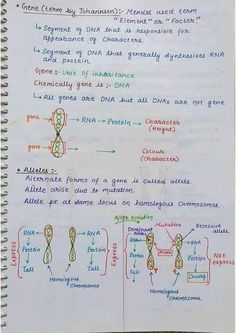 • Gene (term by Johannsen):- Mendel used term
"Element" or "Factor."
↳ Segment of DNA that is responsible for
appearance of characters.
↳ Segment of DNA that generally synthesizes RNA
and protein.
Gene :- Unit of inheritance
Chemically gene is :- DNA
↳ All genes are DNA but all DNAs are not gene.
gene → RNA → Protein → Character
(Height)
gene → Character
(Colour)
• Alleles :-
Alternate forms of a gene is called allele.
Allele arise due to mutation.
Allele at same locus on homologous Chromosomes.
After evolution
Mutation
Recessive allele
Dominant allele
Express
RNA
Protein
Tall
RNA
Protein
Tall
Express
Homologous
Chromosome
Express
RNA
Protein
Tall
Allele
RNA
Protein
Dwarf
Not
express
Homologous
Chromosome